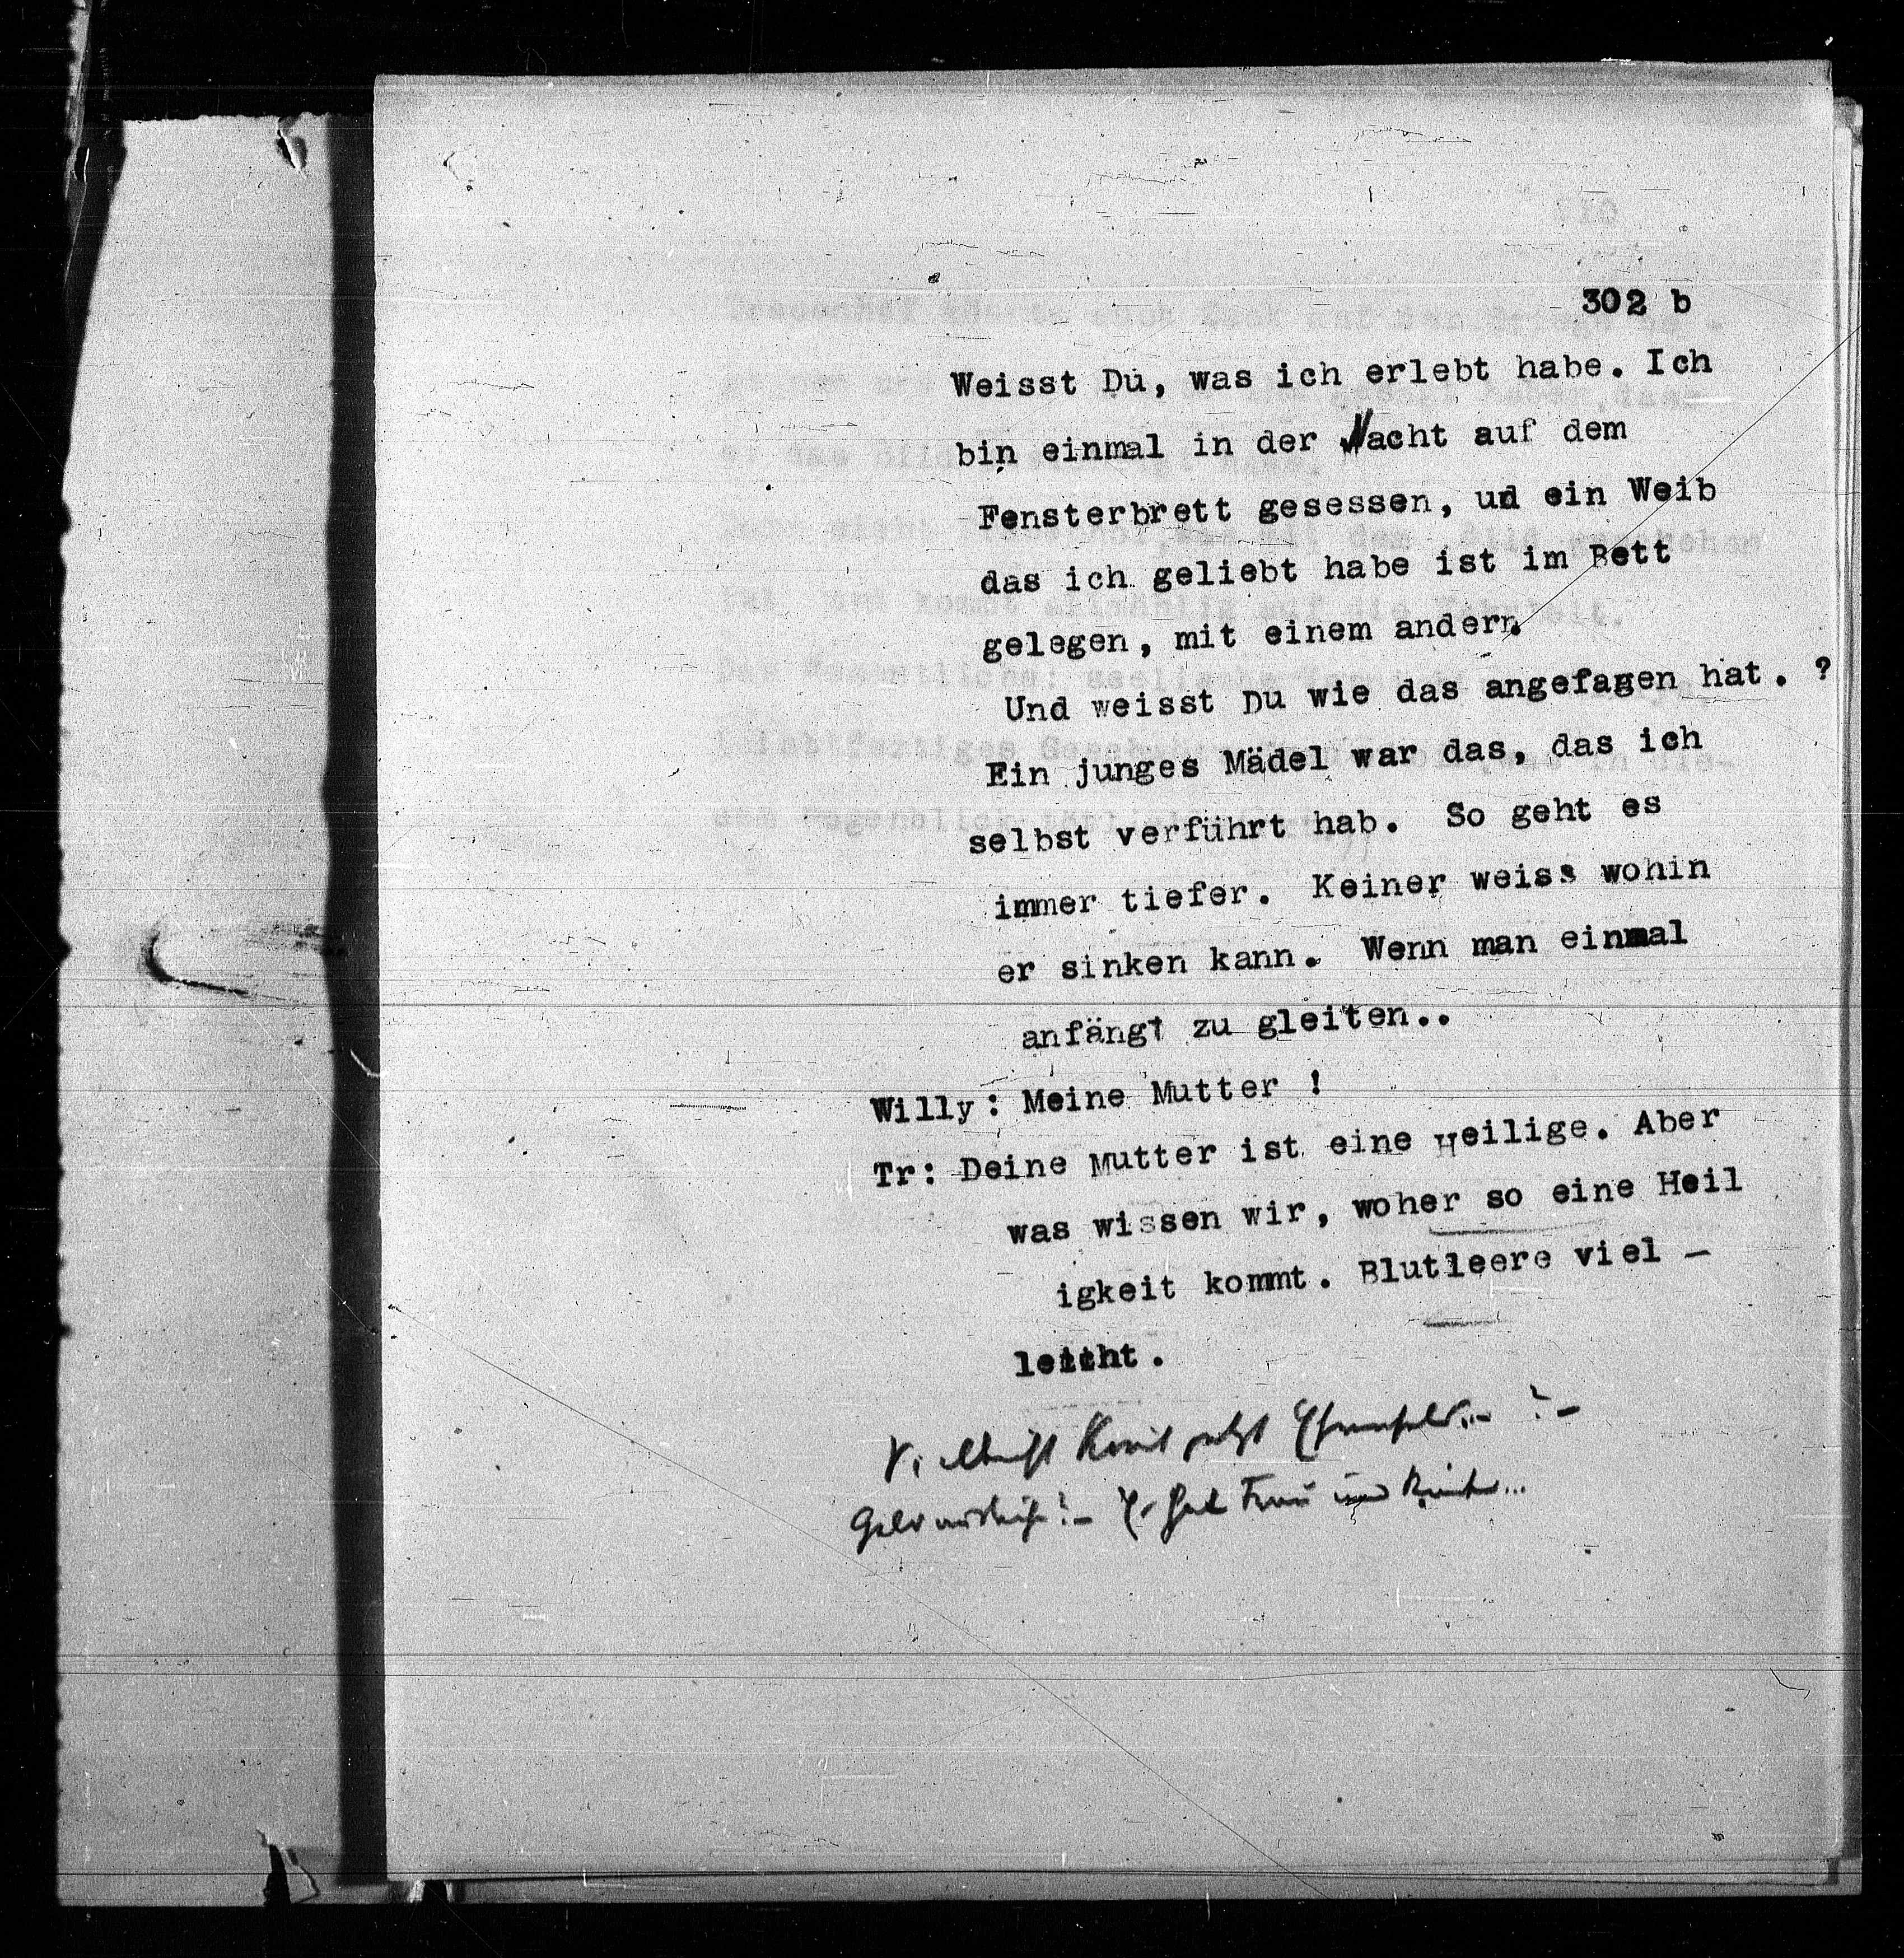 302 b
Weisst Du, was ich erlebt habe. Ich
bin einmal in der Nacht auf dem
Fensterbrett gesessen, und ein Weib
das ich geliebt habe ist im Bett
gelegen, mit einem andern
Und weisst Du wie das angefagen hat. ?
Ein junges Mädel war das, das ich
selbst verführt hab. So geht es
immer tiefer. Keiner weiss wohin
er sinken kann. Wenn man einmal
anfängt zu gleiten..
Willy: Meine Mutter !
Tr: Deine Mutter ist eine Heilige. Aber
was wissen wir, woher so eine Heil
igkeit kommt. Blutleere viel -
leicht.
Vielleicht kommt jetzt
Er hat Frau und Kinder...